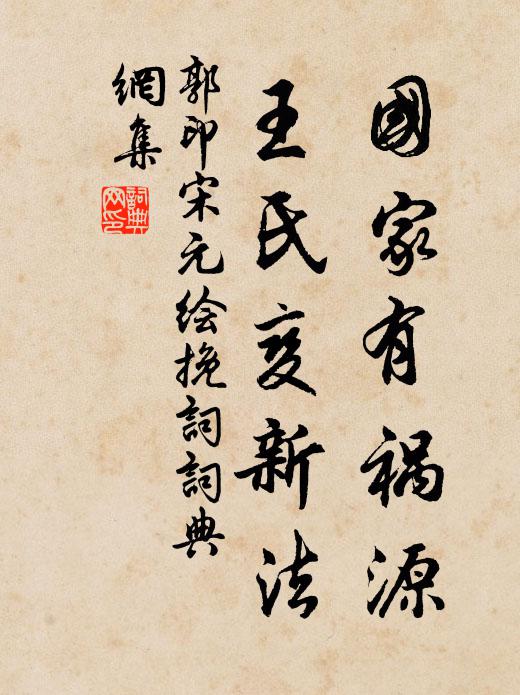 國家有禍源
王氏变新法
郭印宋元绘挽詞詞典
網集
詞典
网印